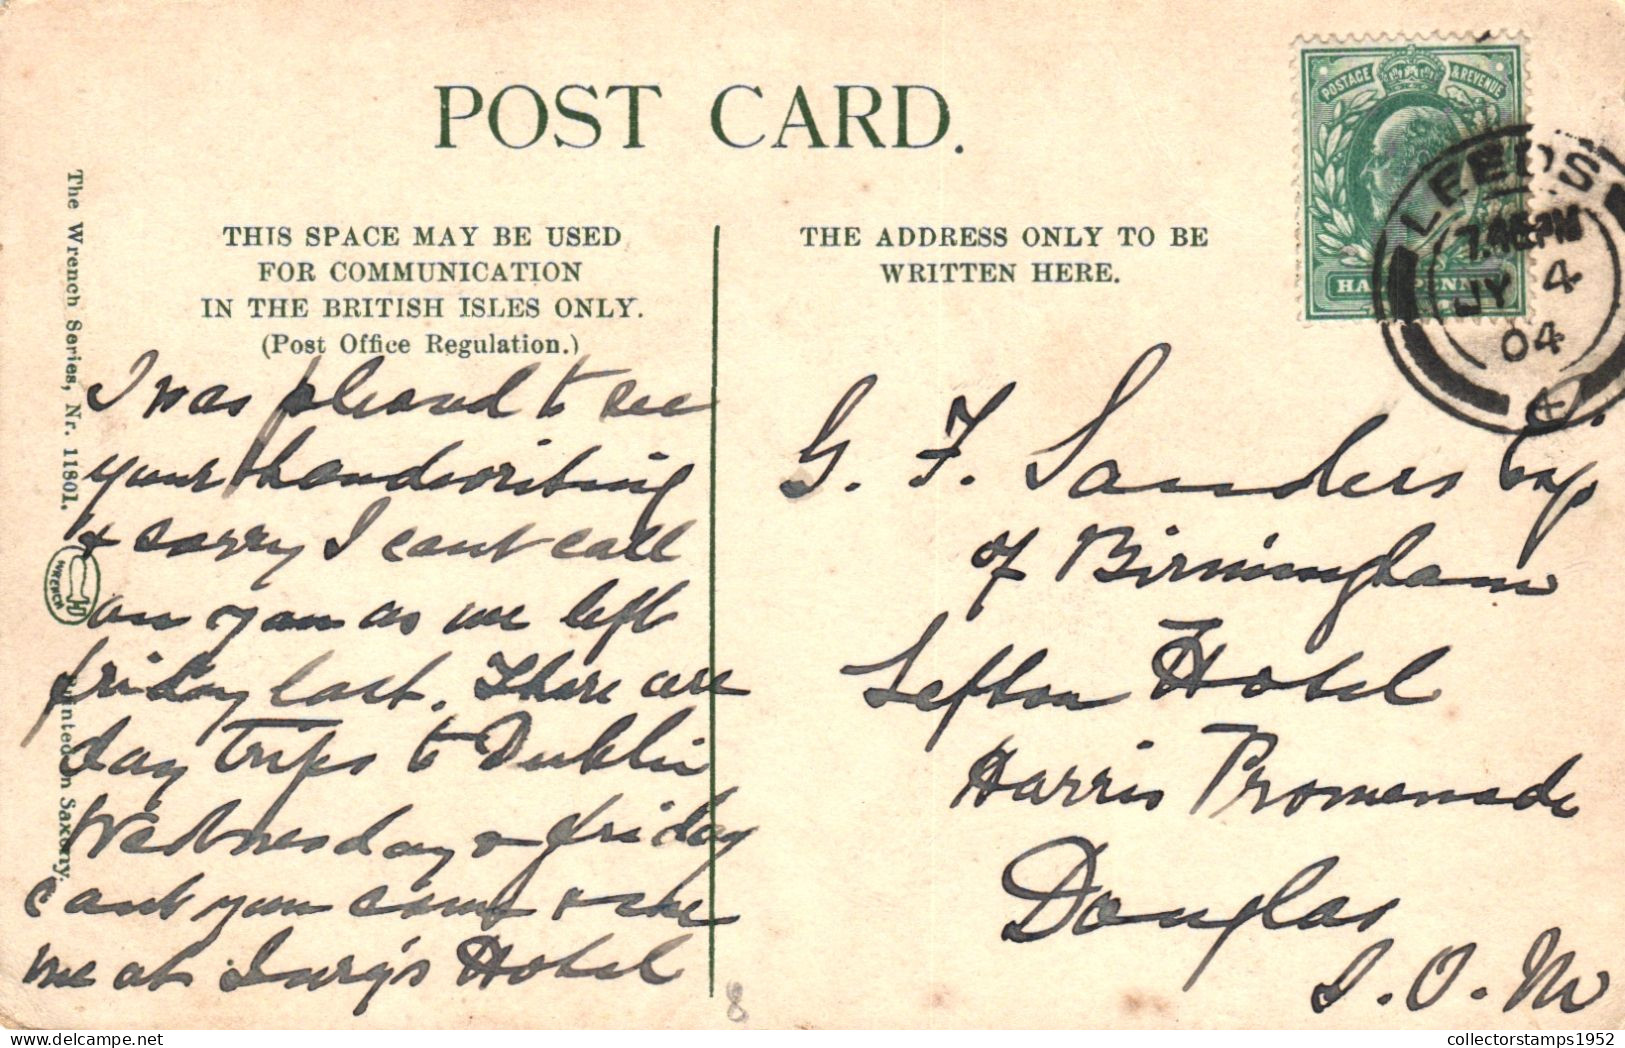 POST CARD.
POSTAGE & REVENUE
HALFPENNY
LEEDS
7.45PM
JY 4
04
The Wrench Series, Nr. 11801.
WRENCH
Printed in Saxony.
THIS SPACE MAY BE USED
FOR COMMUNICATION
IN THE BRITISH ISLES ONLY.
(Post Office Regulation.)
I was pleased to see
your handwriting
& sorry I cant call
on you as we left
friday last. There are
day trips to Dublin
Wednesday & friday
cant you come & see
me at Hotel
THE ADDRESS ONLY TO BE
WRITTEN HERE.
G. F. Sanders Esq
of Birmingham
Sefton Hotel
Harris Promenade
Douglas
I. O. M
8
collectorstamps1952